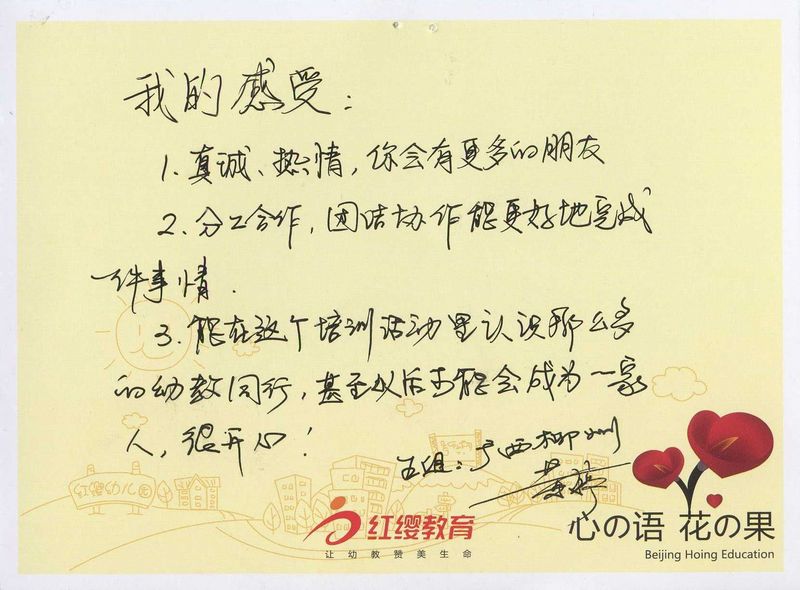 我的感受：
1. 真诚、热情，你会有更多的朋友
2. 分工合作，团结协作能更好地完成
一件事情.
3. 能在这个培训活动里认识那么多
的幼教同行，甚至以后可能会成为一家
人，很开心！
五组：广西柳州
黄婷
红缨幼儿园
红缨教育
让幼教赞美生命
心の语 花の果
Beijing Hoing Education